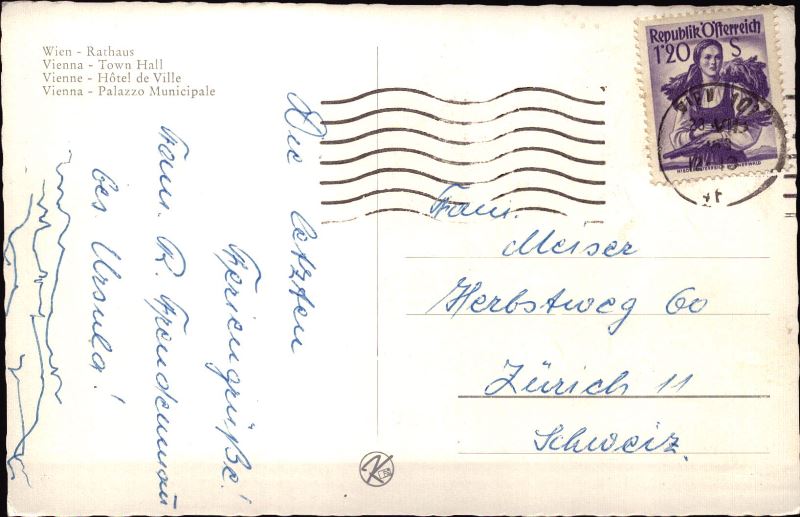 Wien - Rathaus
Vienna - Town Hall
Vienne - Hôtel de Ville
Vienna - Palazzo Municipale
Die letzten
Feriengrüße!
Fam. R.
bes. Ursula!
Republik Österreich
1'20 S
Fam.
Meiser
Herbstweg 60
Zürich 11
Schweiz.